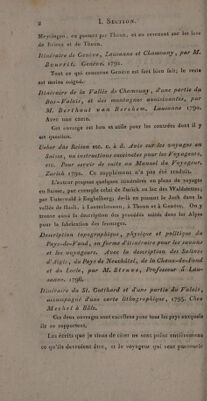 2 I. SECTION.
Meyringen, en passant par Thoun, et en revenant sur les lacs
de Brienz et de Thoun.
Itinéraire de Genève, Lausanne et Chamouny, par M.
Bourrit. Genève, 1791.
Tout ce qui concerne Genève est fort bien fait; le reste
est moins soigné.
Itinéraire de la Vallée de Chamouny, d'une partie du
Bas-Valais, et des montagnes avoisinantes, par
M. Berthout van Berchem, Lausanne 1790.
Avec une carte.
Cet ouvrage est bon et utile pour les contrées dont il y
est question.
Ueber das Reisen etc. c. à d. Avis sur les voyages en
Suisse, ou instructions concises pour les Voyageurs,
etc. Pour servir de suite au Manuel du Voyageur.
Zurich 1792. Ce supplément n'a pas été traduit.
L'auteur propose quelques itinéraires ou plans de voyages
en Suisse, par exemple celui de Zurich au lac des Waldstettes;
par Unterwald à Enghelberg; de-là en passant le Joch dans la
vallée de Hasli, à Lauterbrounn, à Thoun et à Genève. On y
trouve aussi la description des procédés usités dans les Alpes
pour la fabrication des fromages.
Description topographique, physique et politique du
Pays-de-Vaud, en forme d'itinéraire pour les savans
et les voyageurs. Avec la description des Salines
d'Aigle, du Pays de Neuchâtel, de la Chaux-de-Fond
et du Locle, par M. Struve, Professeur à Lau-
sanne. 1796.
Itinéraire du St. Gotthard et d'une partie du Valais,
accompagné d'une carte lithographique, 1795. Chez
Mechel à Bâle.
Ces deux ouvrages sont excellens pour tous les pays auxquels
ils se rapportent.
Les écrits que je viens de citer ne sont point entièrement
ce qu'ils devroient être, et le voyageur qui veut parcourir